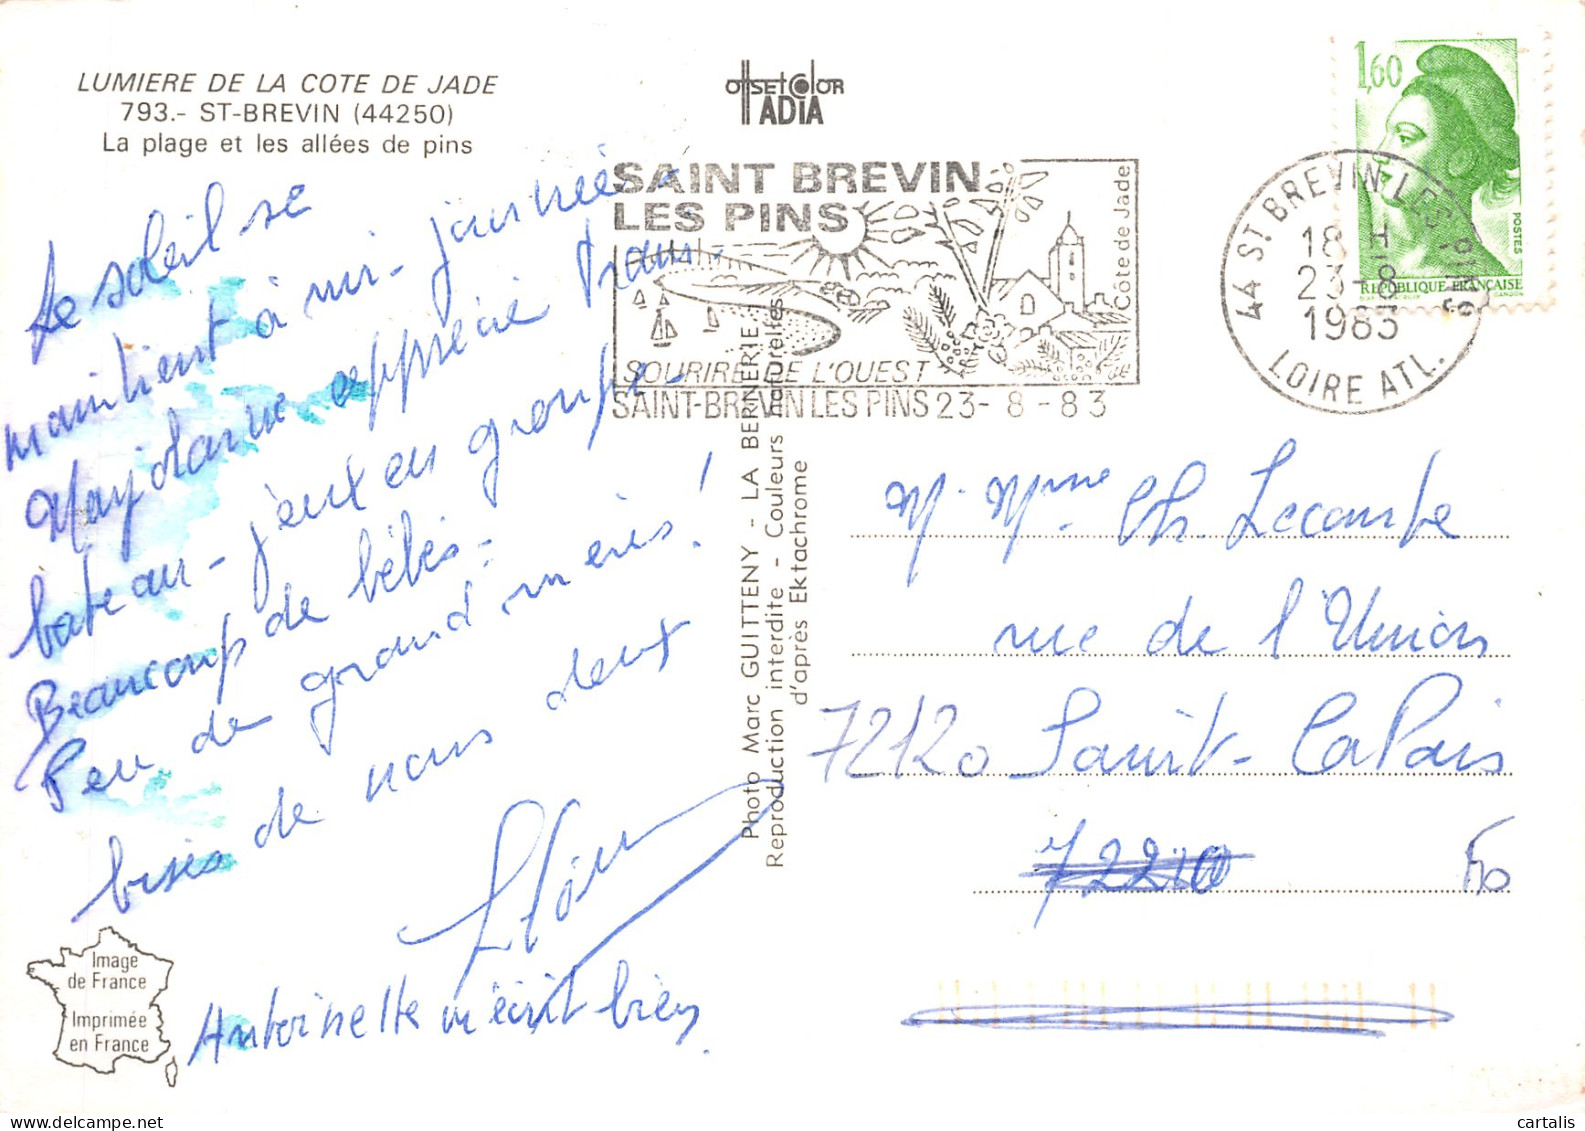 LUMIERE DE LA COTE DE JADE
793.- ST-BREVIN (44250)
La plage et les allées de pins
OffsetColor
ADIA
SAINT BREVIN
LES PINS
Côte de Jade
SOURIRE DE L'OUEST
SAINT-BREVIN LES PINS 23-8-83
1,60
POSTES
REPUBLIQUE FRANÇAISE
GANDON
44 ST BREVIN-LES-PINS
18 H
23-8
1983
LOIRE ATL.
Le soleil se
maintient à mi-journée -
Marjolaine apprécie trans-
bateau - jeux en groupe -
Beaucoup de bébés -
Peu de grand mères !
bises de nous deux
Antoinette m'écrit bien.
Photo Marc GUITTENY - LA BERNERIE.
Reproduction interdite - Couleurs naturelles
d'après Ektachrome
M. Mme Ch. Lecombe
rue de l'Union
72120 Saint-Calais
72210
Image
de France
Imprimée
en France
cartalis